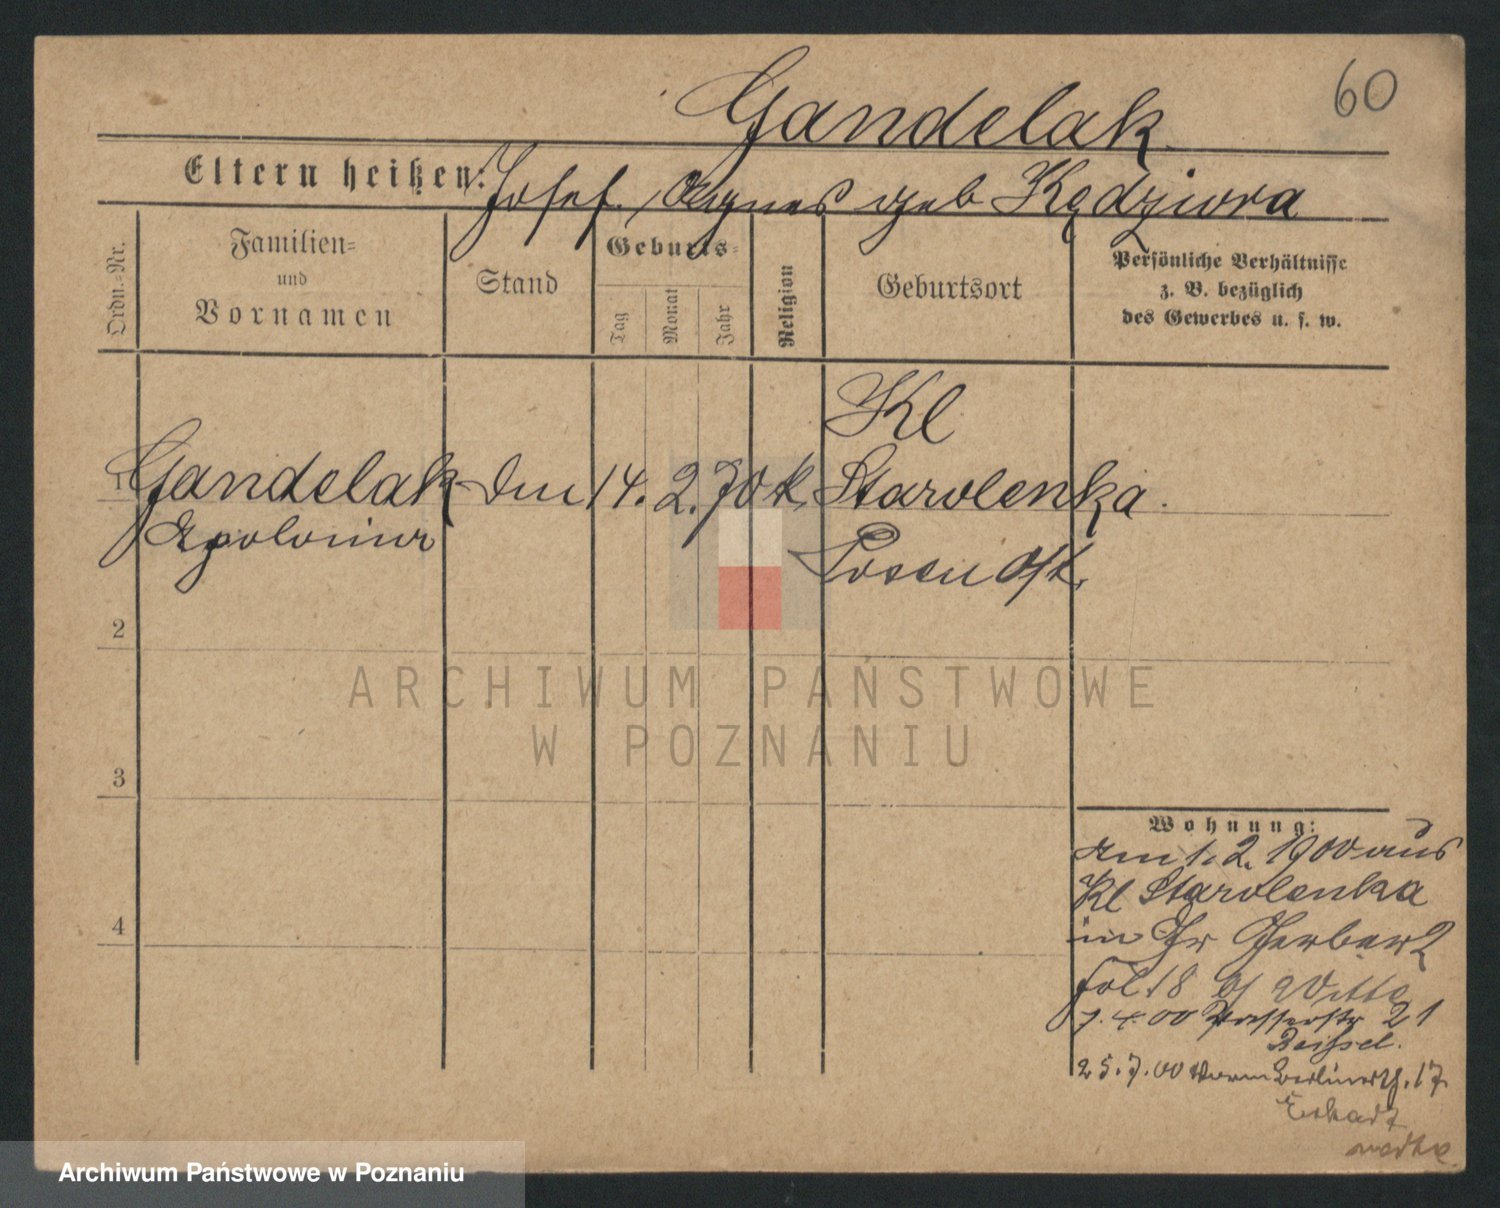 60
Gandelak
Eltern heißen: Josef, Agnes geb Kędziora
Ordn.-Nr.
Familien-
und
Vornamen
Stand
Geburts-
Tag
Monat
Jahr
Religion
Geburtsort
Persönliche Verhältnisse
z. B. bezüglich
des Gewerbes u. s. w.
Kl
1 Gandelak 14. 2. 70 k. Starolenka.
Apolonia
Posen Ost.
2
ARCHIWUM PAŃSTWOWE
W POZNANIU
3
Wohnung:
am 1. 2. 1900 aus
Kl Starolenka
in Gr Gerber
18 bei Witte
7. 4. 00 Wasserstr 21
25. 7. 00 Berlinerth. 17
4
Archiwum Państwowe w Poznaniu